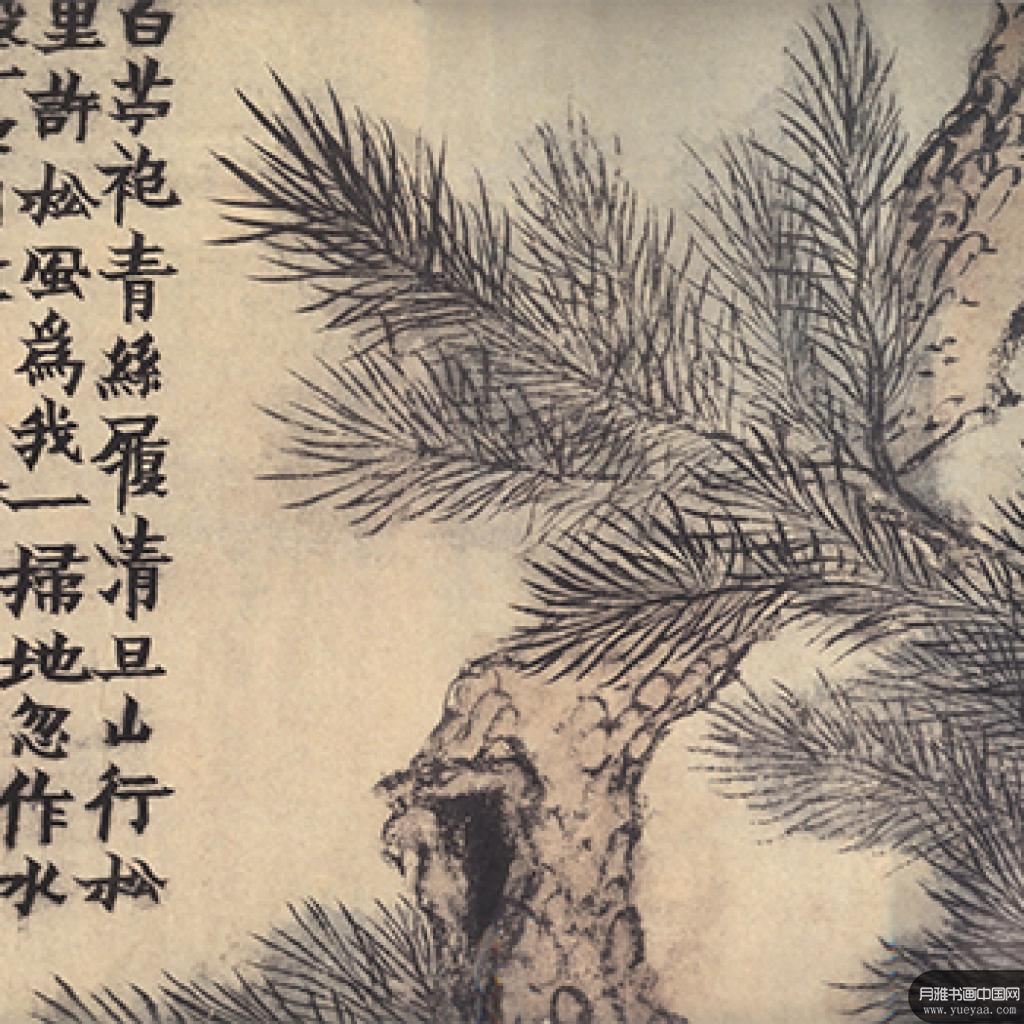 白苧袍青絲履清旦山行松
里許松風爲我一掃地忽作水
月雅书画中国网
www.yueyaa.com